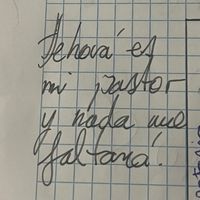 Jehová es
mi pastor
y nada me
faltará.